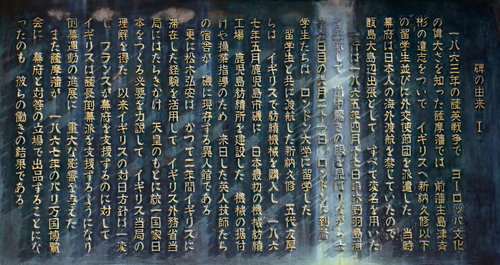 碑の由来 Ⅰ
一八六三年の薩英戦争で ヨーロッパ文化
の偉大さを知った薩摩藩では 前藩主島津斉
彬の遺志をついで イギリスへ新納久脩以下
の留学生並びに外交使節団を派遣した 当時
幕府は日本人の海外渡航を禁じていたので
甑島大島辺出張として すべて変名を用いた
一行は一八六五年四月十七日串木野
の眼を見はりながら六
十六日目の六月二十一日 ロンドンに到着
学生たちは ロンドン大学に留学した
留学生と共に渡航した新納久脩 五代友厚
らは イギリスで紡績機械を購入し 一八六
七年五月鹿児島市磯に 日本最初の機械紡績
工場 鹿児島紡績所を建設した 機械の据付
けや操業指導のため 来日した英人技師たち
の宿舎が 磯に現存する異人館である
更に松木弘安は かつて二年間イギリスに
滞在した経験を活用して イギリス外務省当
局にはたらきかけ 天皇のもとに統一国家日
本をつくる必要を力説して イギリス当局の
理解を得た 以来イギリスの対日方針は一変
し フランスが幕府を支援するのに対して
イギリスは薩長倒幕派を支援するようになり
倒幕運動の進展に 重大な影響を与えた
また薩摩藩が 一八六七年のパリ万国博覧
会に 幕府と対等の立場で出品することにな
ったのも 彼らの働きの結果である